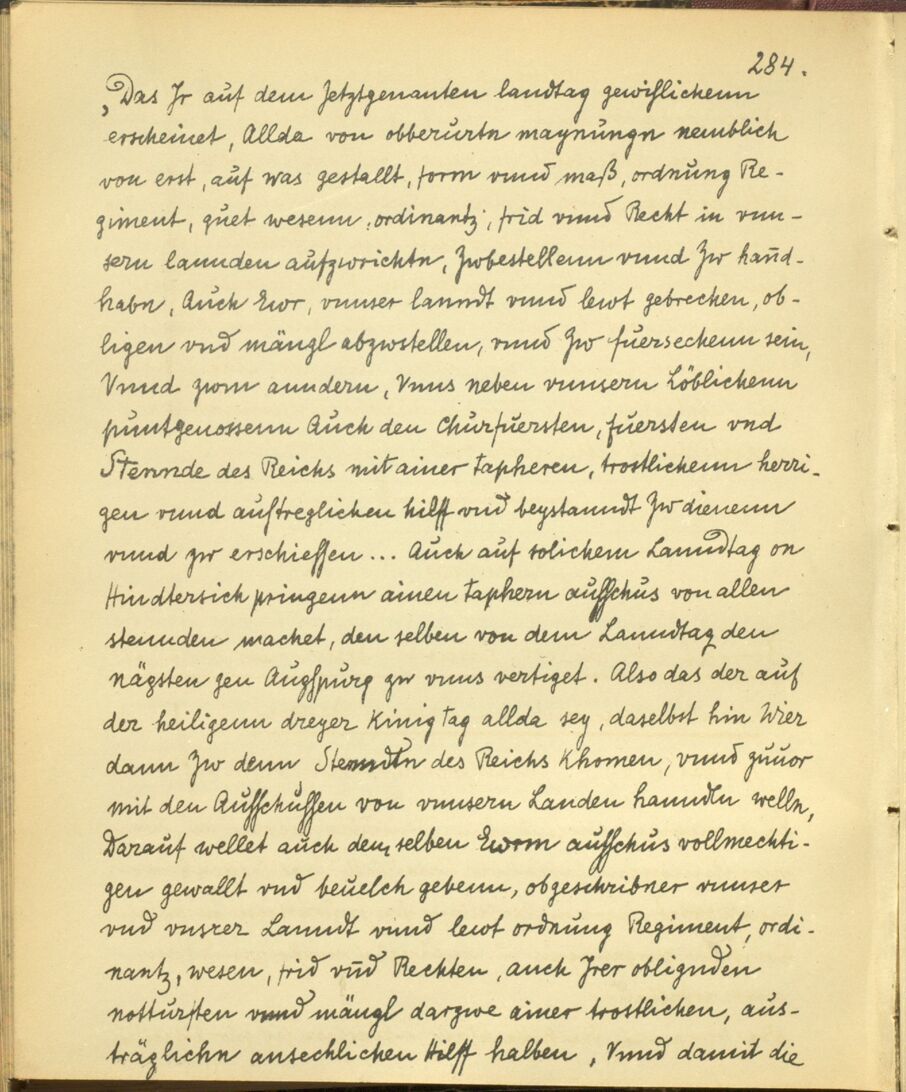 284.
„Das Jr auf dem Jetztgenanten landtag gewißlichenn
erscheinet, Allda von obberurtn maynungn nemblich
von erst, auf was gestallt, form vnnd maß, ordnung Re-
giment, guet wesenn, ordinantz, frid vnnd Recht in vnn-
sern lannden aufzwrichtn, Zwbestellenn vnnd Zw hannd-
habn, Auch Ewr, vnnser lanndt vnnd lewt gebrechen, ob-
ligen vnd mängl abzwstellen, vnnd Zw fuersechenn sein,
Vnnd zwm anndern, Vnns neben vnnsern Löblichenn
puntgenossenn Auch den Churfuersten, fuersten vnd
Stennde des Reichs mit ainer tapheren, trostlichenn herri-
gen vnnd auftreglichen hilff vnd beystanndt Zw dienenn
vnnd zw erschieffen ... Auch auf solichem Lanndtag on
Hindtersich pringenn ainen taphern aufschus von allen
stennden machet, den selben von dem Lanndtag den
nägsten gen Augspurg zw vnns vertiget. Also das der auf
der heiligenn dreyer Kinig tag allda sey, daselbst hin Wier
dann Zw denn Stenndtn des Reichs Khomen, vnnd zuuor
mit den Aufschußen von vnnsern Landen hanndln welln,
Darauf wellet auch dem selben Ewrm aufschus vollmechti-
gen gewallt vnd beuelch gebenn, obgeschribner vnnser
vnd vnsrer Lanndt vnnd lewt ordnung Regiment, ordi-
nantz, wesen, frid vnd Rechten, auch Jrer oblignden
notturften vnnd mängl darzwe ainer trostlichen, aus-
träglichn ansechlichen Hilff halben, Vnnd damit die